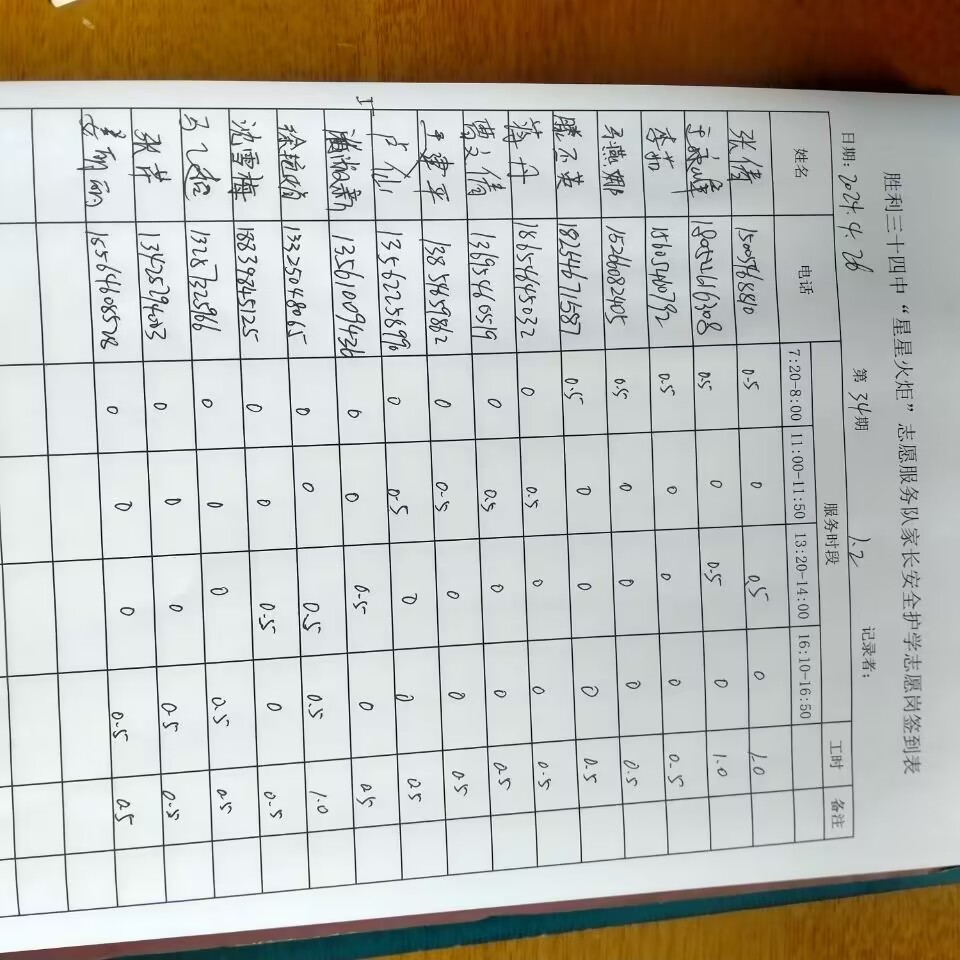 胜利三十四中“星星火炬”志愿服务队家长安全护学志愿岗签到表
日期：2024.4.26 第34期 1.2 记录者：
姓名 电话 服务时段 工时 备注
7:20-8:00 11:00-11:50 13:20-14:00 16:10-16:50
张倩 0.5 0 0.5 0 1.0
0.5 0 0.5 0 1.0
李茹 15605460792 0.5 0 0 0 0.5
王燕娜 15266082405 0.5 0 0 0 0.5
滕丕英 18254671587 0.5 0 0 0 0.5
蒋丹 18654645032 0 0.5 0 0 0.5
13695465519 0 0.5 0 0 0.5
王建平 13854659862 0 0.5 0 0 0.5
卢仙 13562258696 0 0.5 0 0 0.5
13561009436 0 0 0.5 0 0.5
徐艳娟 13325048065 0 0 0.5 0.5 1.0
沈雪梅 18839845125 0 0 0.5 0 0.5
13287325966 0 0 0 0.5 0.5
张萍 13428794003 0 0 0 0.5 0.5
姜丽丽 0 0 0 0.5 0.5